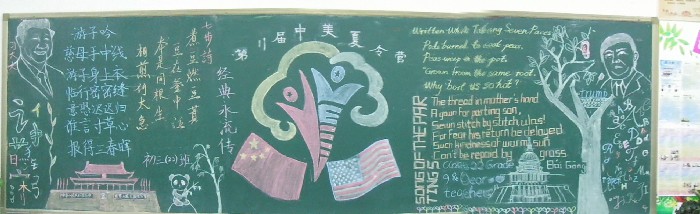 游子吟
慈母手中线
游子身上衣
临行密密缝
意恐迟迟归
谁言寸草心
报得三春晖
初三(22)班
七步诗
煮豆燃豆萁
豆在釜中泣
本是同根生
相煎何太急
经典永流传
第11届中美夏令营
Written While Taking Seven Paces
Pods burned to cook peas,
Peas weep in the pot:
Grown from the same root,
Why boil us so hot?
SONG OF THE PARTINGS
The thread in mother's hand
A gown for parting son,
Sewn stitch by stitch, alas!
For fear his return be delayed
Such kindness of warm sun
Can't be repaid by grass
Class 22 Grade
9& teachers
Trump